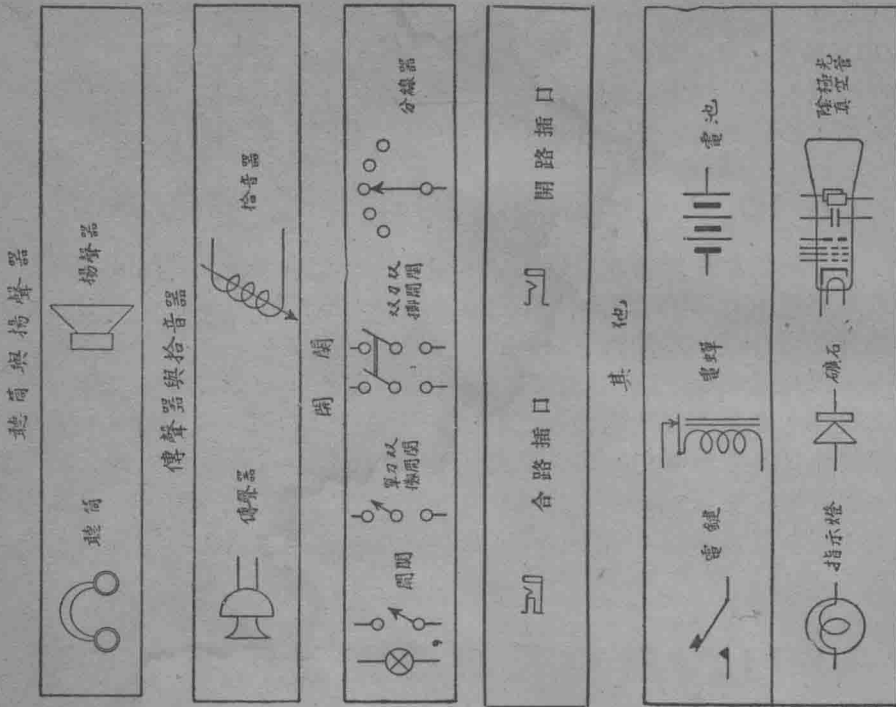 聽筒與揚聲器
聽筒
揚聲器
傳聲器與拾音器
傳聲器
拾音器
開關
開關
單刀双
擲開關
双刀双
擲開關
分線器
合路插口
開路插口
其他
電鍵
電蟬
電池
指示燈
礦石
陰極光
真空管